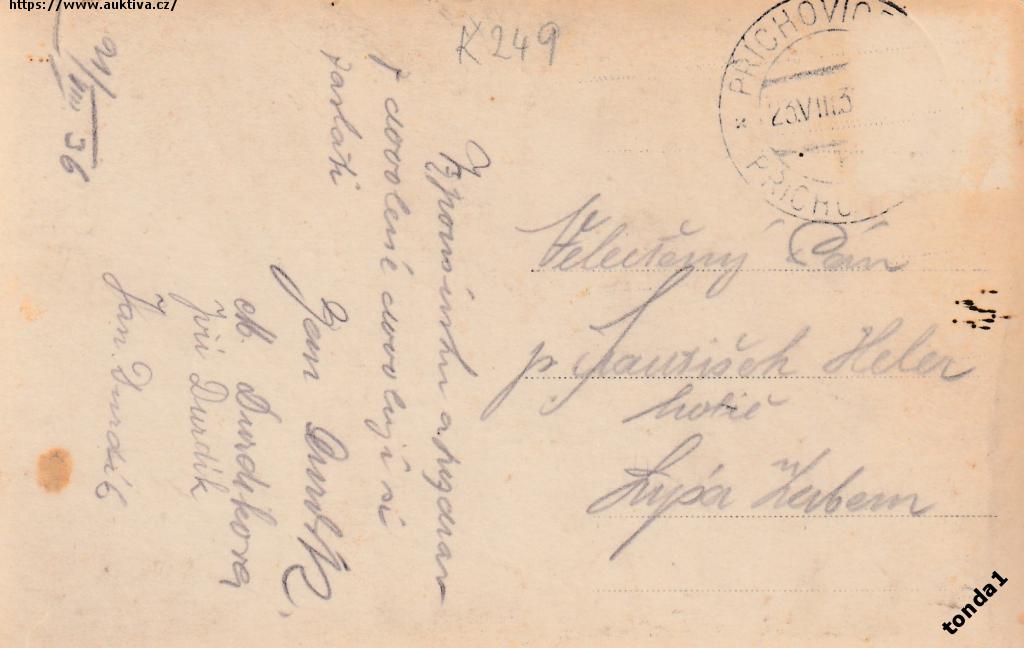 https://www.auktiva.cz/
K 249
PŘÍCHOVICE
23.VIII.3
PŘÍCHO
21/VIII 36
Vzpomínku a pozdrav
z dovolené dovoluji si
zaslati
Jan Durdík
M. Durdíková
Jiří Durdík
Jan Durdík
Velectěný Pán
p. František Heler
holič
Lysá n Labem
tonda1